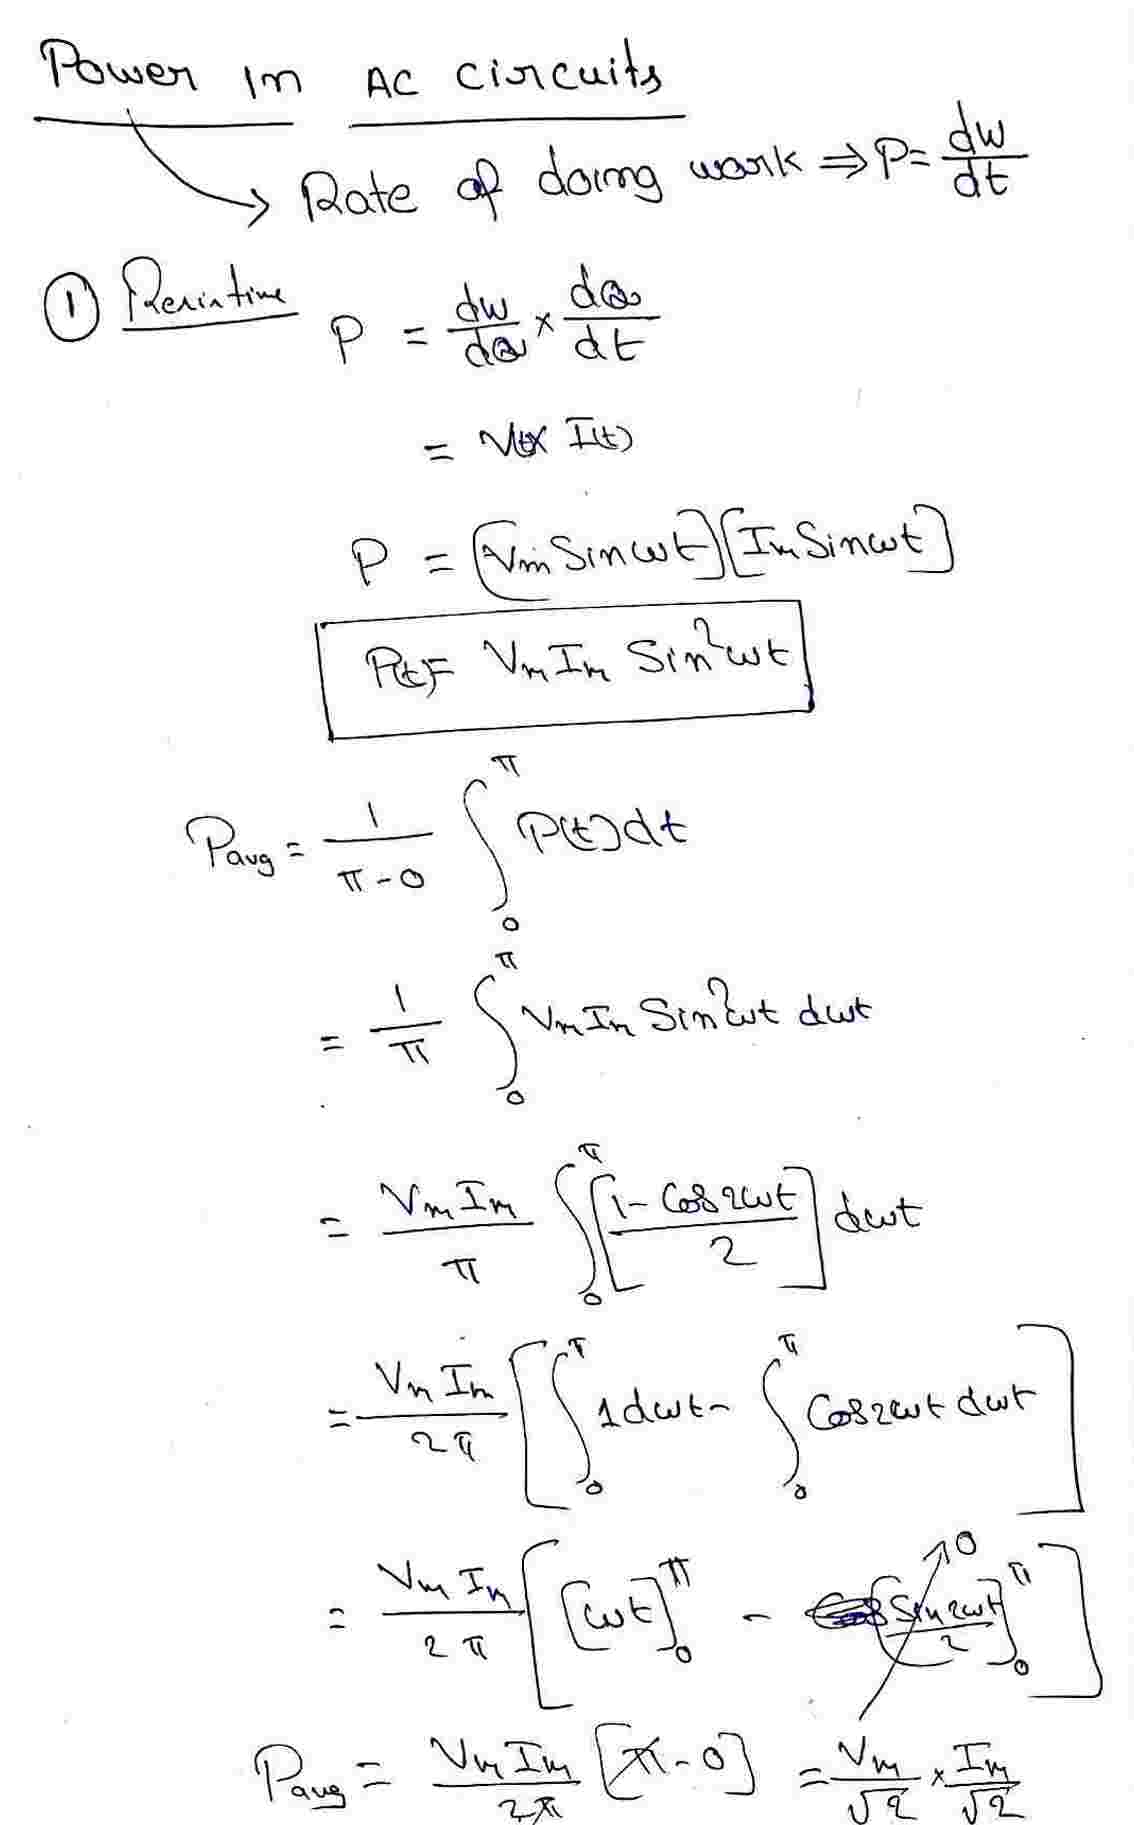 Power in AC circuits
Rate of doing work ⇒ P = dw/dt
① Resistive
P = dw/dQ × dQ/dt
= V(t) × I(t)
P = [Vm Sin ωt][Im Sin ωt]
P(t) = Vm Im Sin² ωt
Pavg = 1/(π-0) ∫₀^π P(t) dt
= 1/π ∫₀^π Vm Im Sin² ωt dωt
= Vm Im/π ∫₀^π [(1 - Cos 2ωt)/2] dωt
= Vm Im/2π [∫₀^π 1 dωt - ∫₀^π Cos 2ωt dωt]
= Vm Im/2π [[ωt]₀^π - [Sin 2ωt/2]₀^π → 0]
Pavg = Vm Im/2π [π - 0] = Vm/√2 × Im/√2